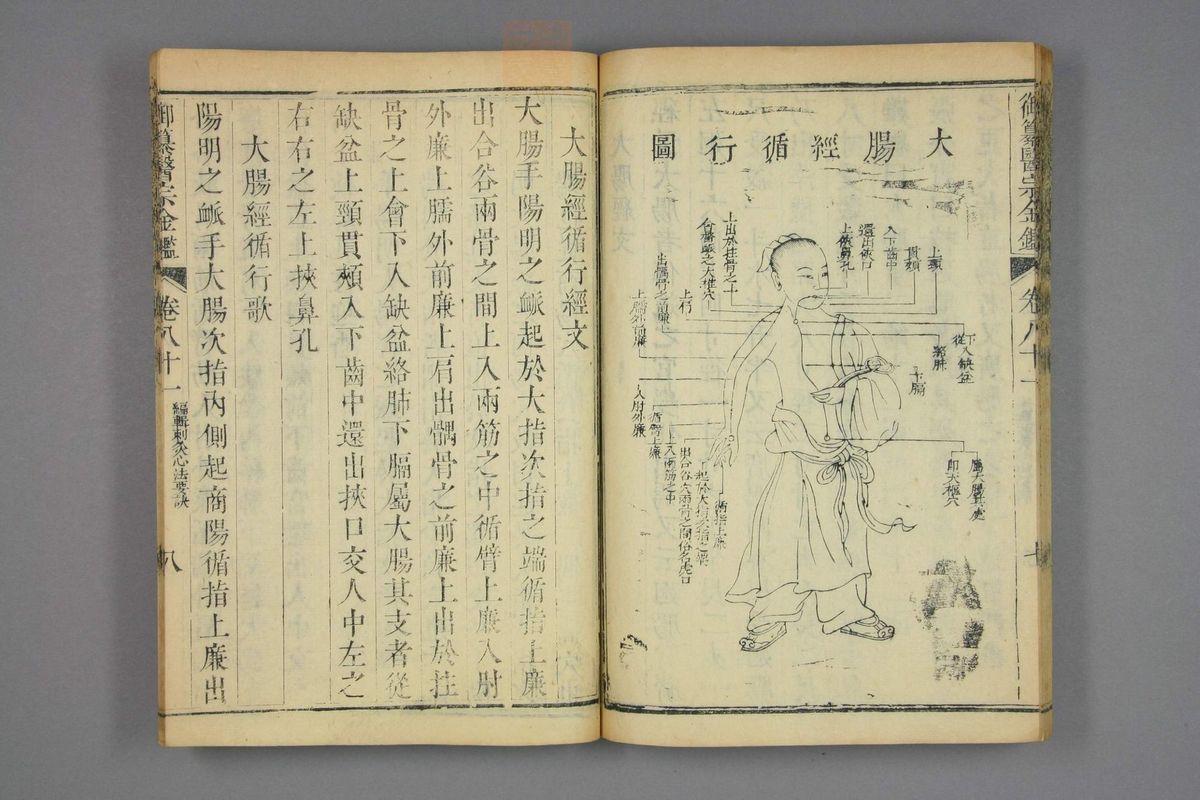 御纂醫宗金鑑
卷八十一
七
大腸經循行圖
上頞
貫頰
入下齒中
還出俠口
上俠鼻孔
下入缺盆
從
絡肺
下膈
屬大腸
即天樞穴
上出於柱骨之上
合督脈之大椎穴
出髃骨之前廉
上肩
上臑外前廉
入肘外廉
循臂上廉
上入兩筋之中
出合谷穴兩骨之間俗名虎口
起於大指次指之端
循指上廉
大腸經循行經文
大腸手陽明之脈起於大指次指之端循指上廉
出合谷兩骨之間上入兩筋之中循臂上廉入肘
外廉上臑外前廉上肩出髃骨之前廉上出於柱
骨之上會下入缺盆絡肺下膈屬大腸其支者從
缺盆上頸貫頰入下齒中還出挾口交人中左之
右右之左上挾鼻孔
大腸經循行歌
陽明之脈手大腸次指內側起商陽循指上廉出
御纂醫宗金鑑
卷八十一
編輯刺灸心法要訣
八